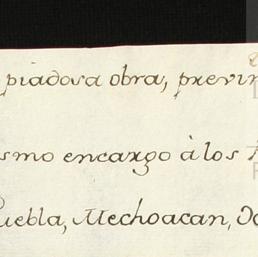 piadosa obra, previn
smo encargo à los A
uebla, Mechoacan, Oa